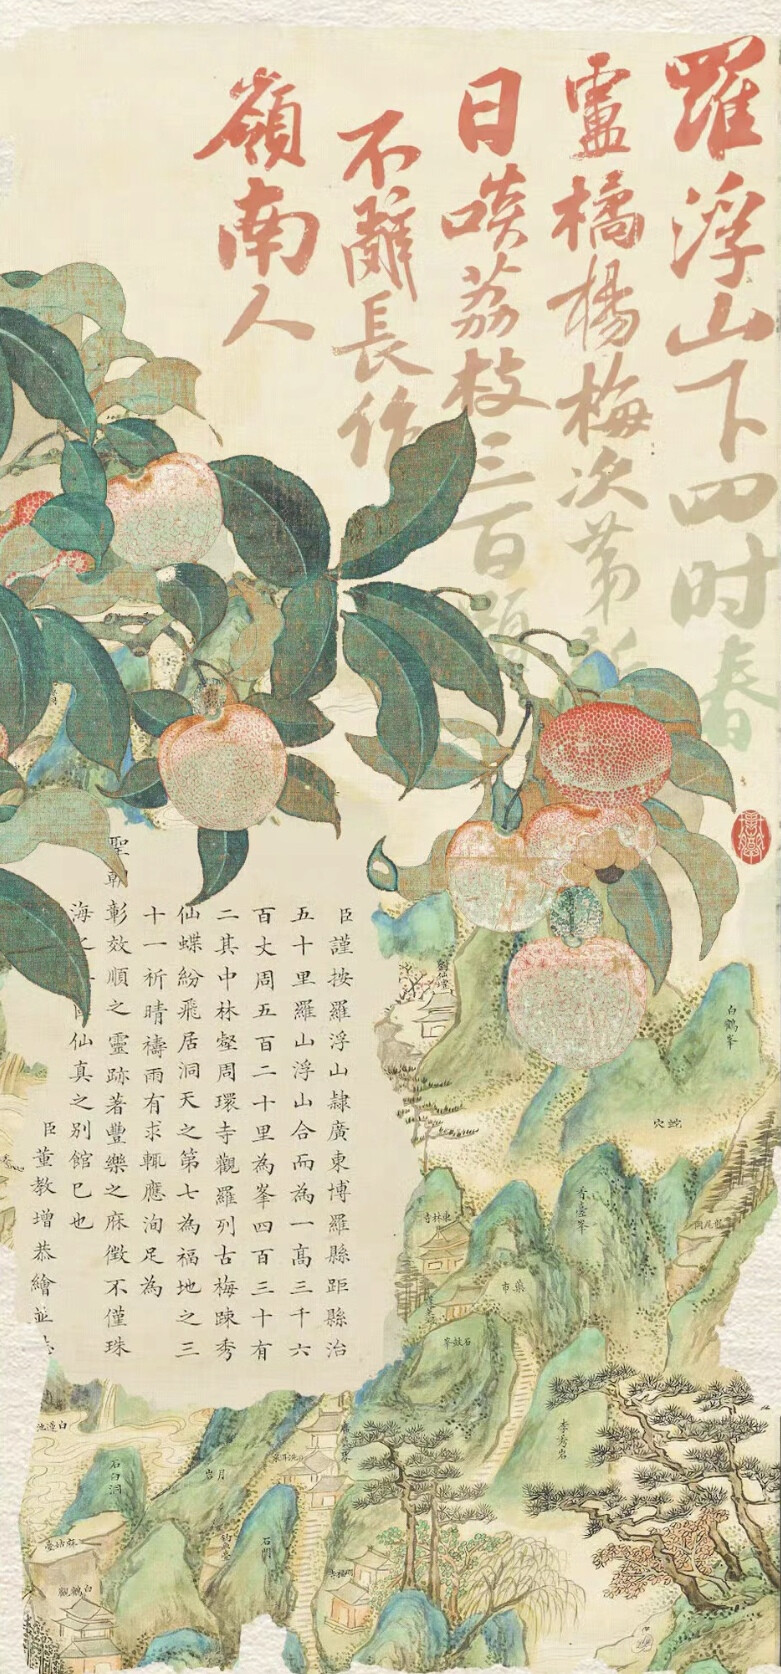 羅浮山下四时春
盧橘楊梅次第
日啖荔枝三百顆
不辭長作
嶺南人
臣謹按羅浮山隸廣東博羅縣距縣治
五十里羅山浮山合而為一高三千六
百丈周五百二十里為峯四百三十有
二其中林壑周環寺觀羅列古梅踈秀
仙蝶紛飛居洞天之第七為福地之三
十一祈晴禱雨有求輒應洵足為
聖朝彰效順之靈跡著豐樂之庥徵不僅珠
海之 仙真之別館已也
臣董教增恭繪並
白鶴峯
蛇穴
香臺峯
東林寺
藥市
石鼓峯
李秀岩
白蓮池
石臼洞
月岩
釣魚臺
石門
麻姑臺
白鶴觀